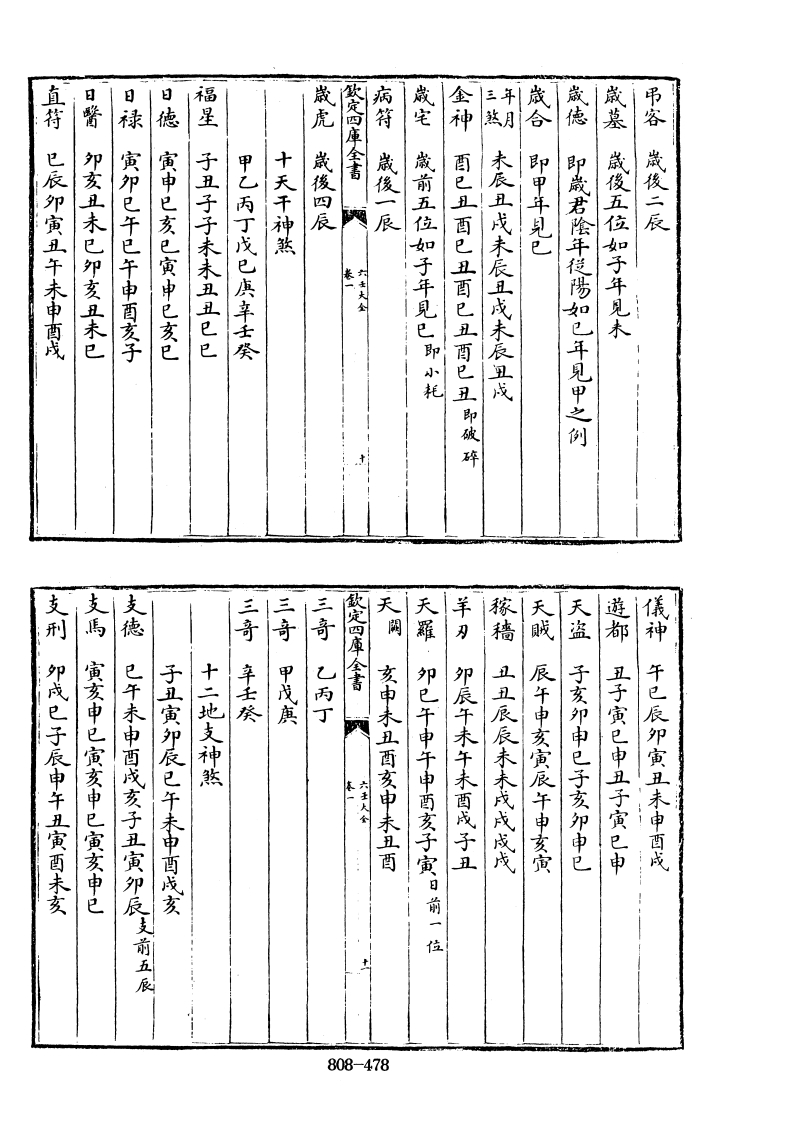 弔客 歲後二辰
歲墓 歲後五位如子年見未
歲德 即歲君陰年從陽如己年見甲之例
歲合 即甲年見巳
年月三煞 未辰丑戌未辰丑戌未辰丑戌
金神 酉巳丑酉巳丑酉巳丑酉巳丑即破碎
歲宅 歲前五位如子年見巳即小耗
病符 歲後一辰
欽定四庫全書 六壬大全 卷一 十
歲虎 歲後四辰
十天干神煞
甲乙丙丁戊己庚辛壬癸
福星 子丑子子未未丑丑巳巳
日德 寅申巳亥巳寅申巳亥巳
日祿 寅卯巳午巳午申酉亥子
日醫 卯亥丑未巳卯亥丑未巳
直符 巳辰卯寅丑午未申酉戌
儀神 午巳辰卯寅丑未申酉戌
遊都 丑子寅巳申丑子寅巳申
天盜 子亥卯申巳子亥卯申巳
天賊 辰午申亥寅辰午申亥寅
稼穡 丑丑辰辰未未戌戌戌戌
羊刃 卯辰午未午未酉戌子丑
天羅 卯巳午申午申酉亥子寅日前一位
天關 亥申未丑酉亥申未丑酉
欽定四庫全書 六壬大全 卷一 十一
三奇 乙丙丁
三奇 甲戊庚
三奇 辛壬癸
十二地支神煞
子丑寅卯辰巳午未申酉戌亥
支德 巳午未申酉戌亥子丑寅卯辰支前五辰
支馬 寅亥申巳寅亥申巳寅亥申巳
支刑 卯戌巳子辰申午丑寅酉未亥
808-478